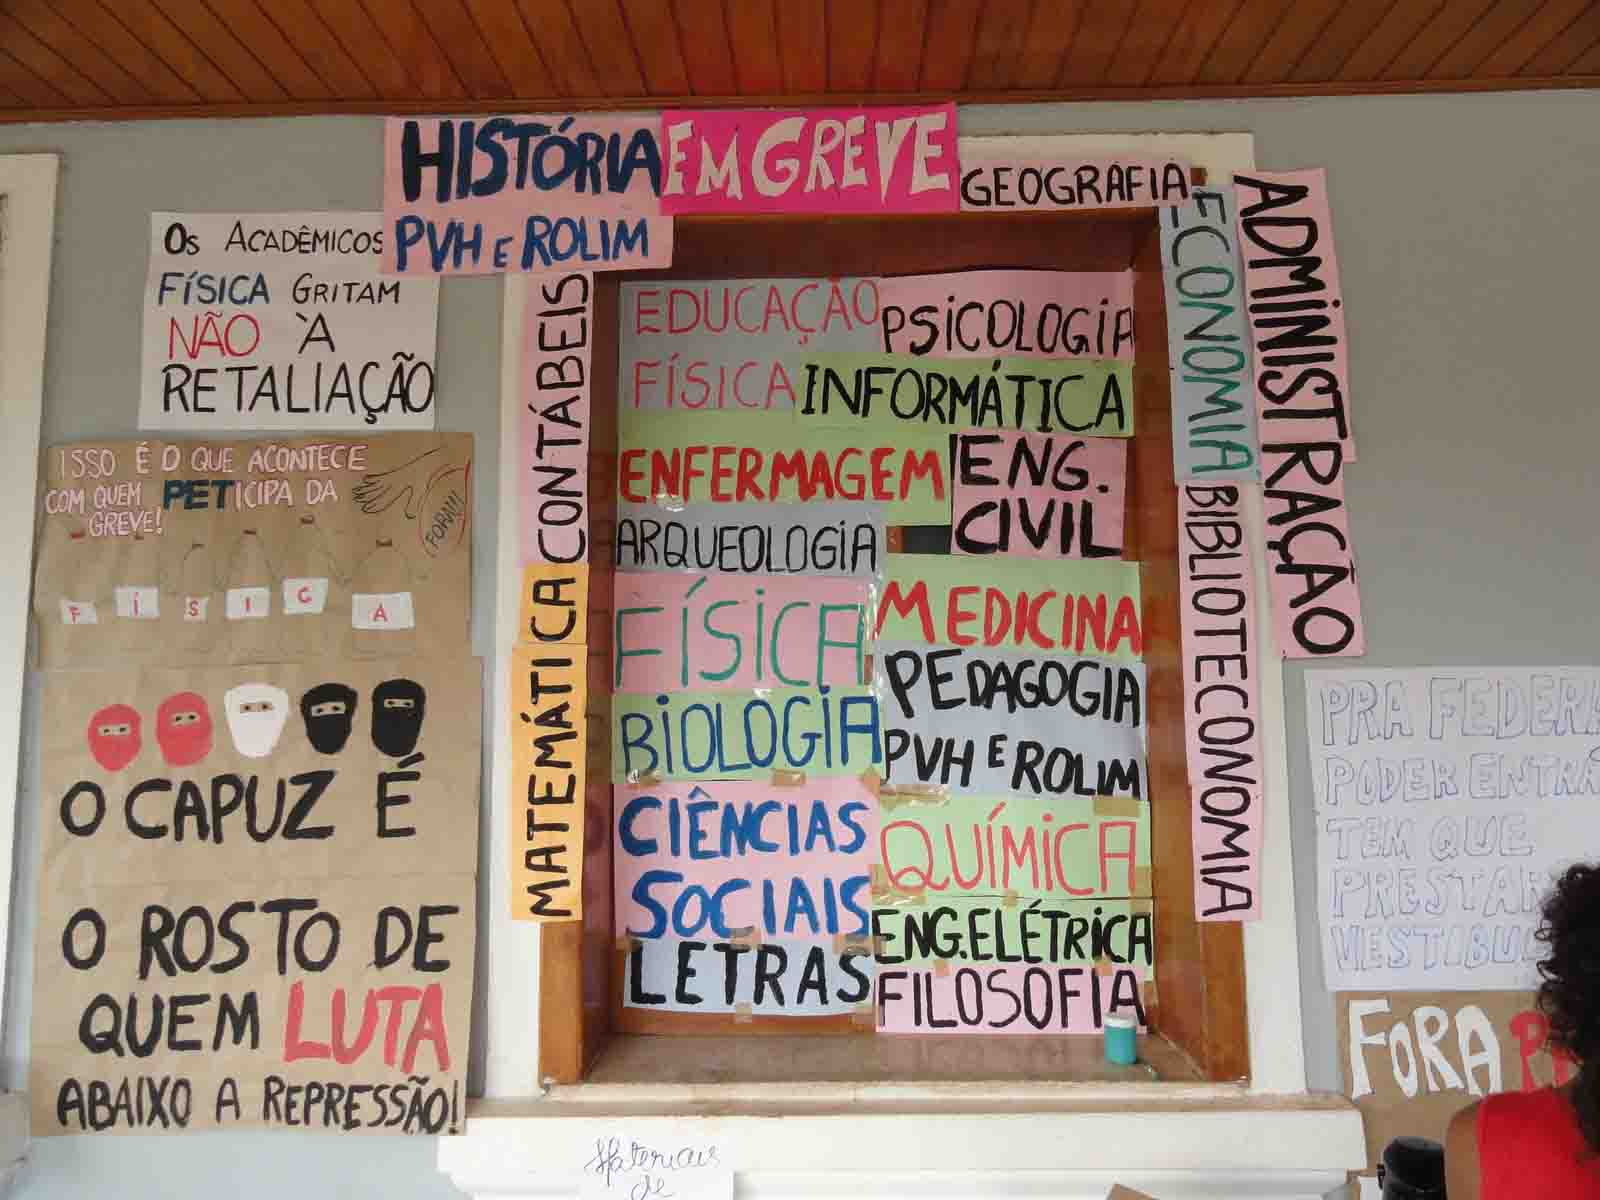 HISTÓRIA
PVH E ROLIM
EM GREVE
GEOGRAFIA
ECONOMIA
ADMINISTRAÇÃO
BIBLIOTECONOMIA
OS ACADÊMICOS
FÍSICA GRITAM
NÃO À
RETALIAÇÃO
ISSO É O QUE ACONTECE
COM QUEM PETICIPA DA
GREVE!
FORA!!!
FÍSICA
O CAPUZ É
O ROSTO DE
QUEM LUTA
ABAIXO A REPRESSÃO!
CONTÁBEIS
MATEMÁTICA
EDUCAÇÃO
FÍSICA
PSICOLOGIA
INFORMÁTICA
ENFERMAGEM
ENG.
CIVIL
ARQUEOLOGIA
FÍSICA
MEDICINA
BIOLOGIA
PEDAGOGIA
PVH E ROLIM
CIÊNCIAS
SOCIAIS
QUÍMICA
LETRAS
ENG.ELÉTRICA
FILOSOFIA
PRA FEDERA
PODER ENTRÁ
TEM QUE
PRESTAR
VESTIBU
FORA
Materiais
de